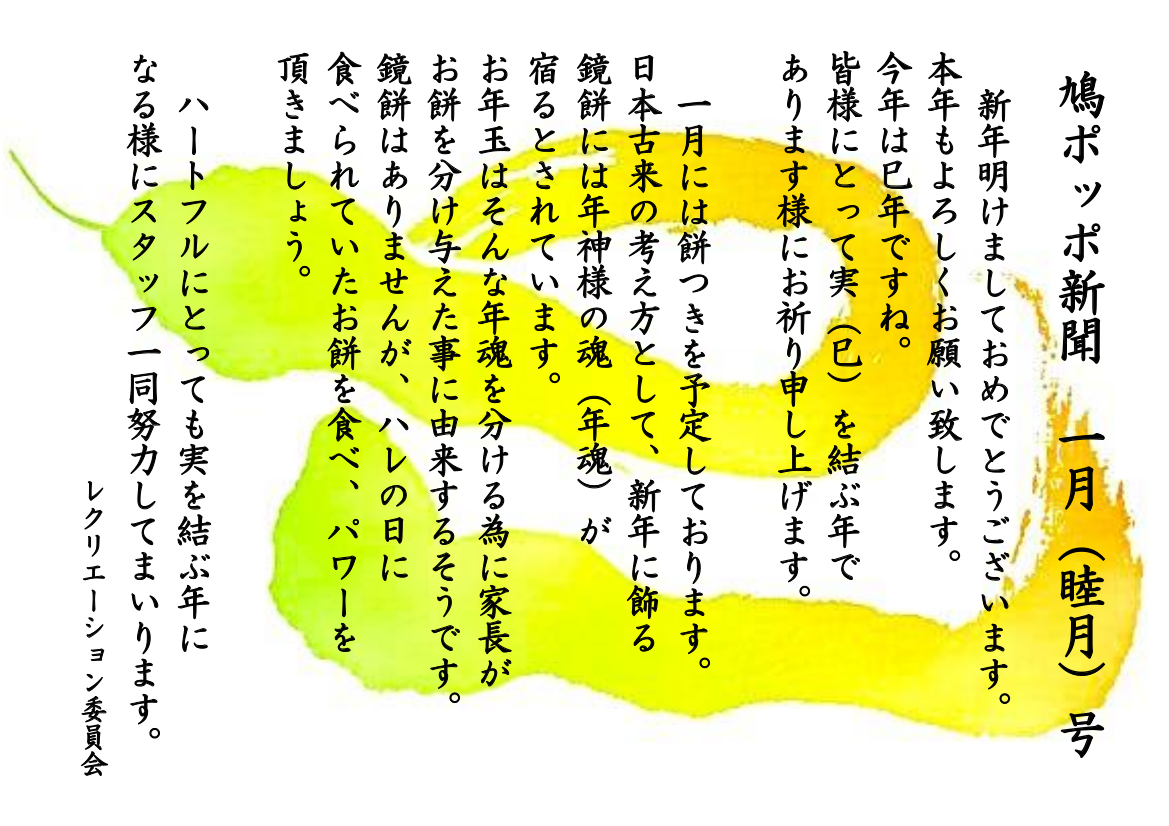 鳩ポッポ新聞　一月（睦月）号
新年明けましておめでとうございます。
本年もよろしくお願い致します。
今年は巳年ですね。
皆様にとって実（巳）を結ぶ年で
あります様にお祈り申し上げます。
一月には餅つきを予定しております。
日本古来の考え方として、新年に飾る
鏡餅には年神様の魂（年魂）が
宿るとされています。
お年玉はそんな年魂を分ける為に家長が
お餅を分け与えた事に由来するそうです。
鏡餅はありませんが、ハレの日に
食べられていたお餅を食べ、パワーを
頂きましょう。
ハートフルにとっても実を結ぶ年に
なる様にスタッフ一同努力してまいります。
レクリエーション委員会